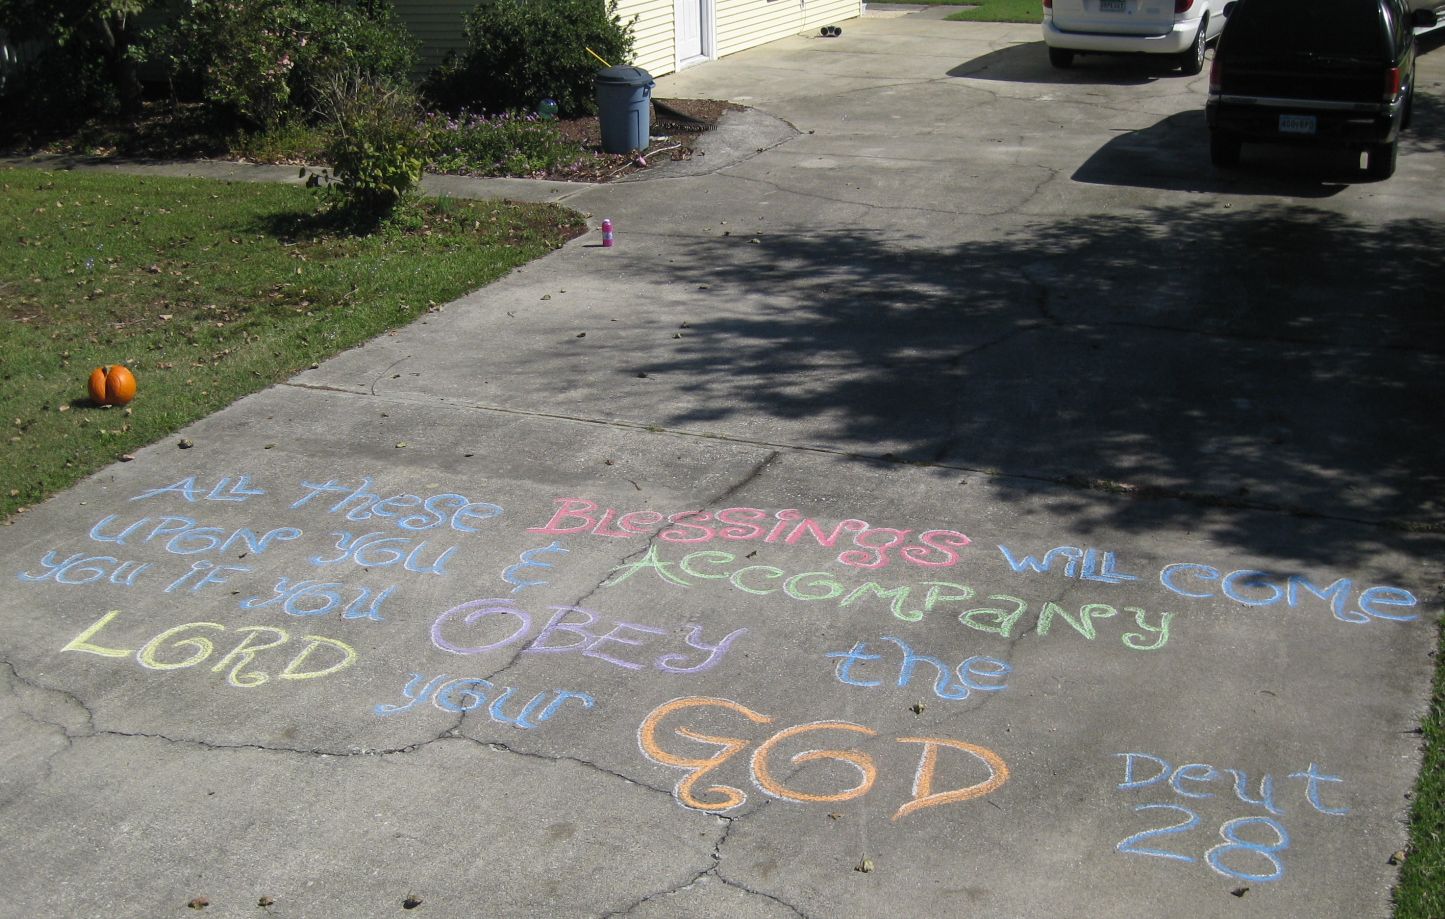 ALL these BLessings will come
UPON YOU & ACCOMPANY
YOU IF YOU OBEY the
LORD your GOD
Deut
28